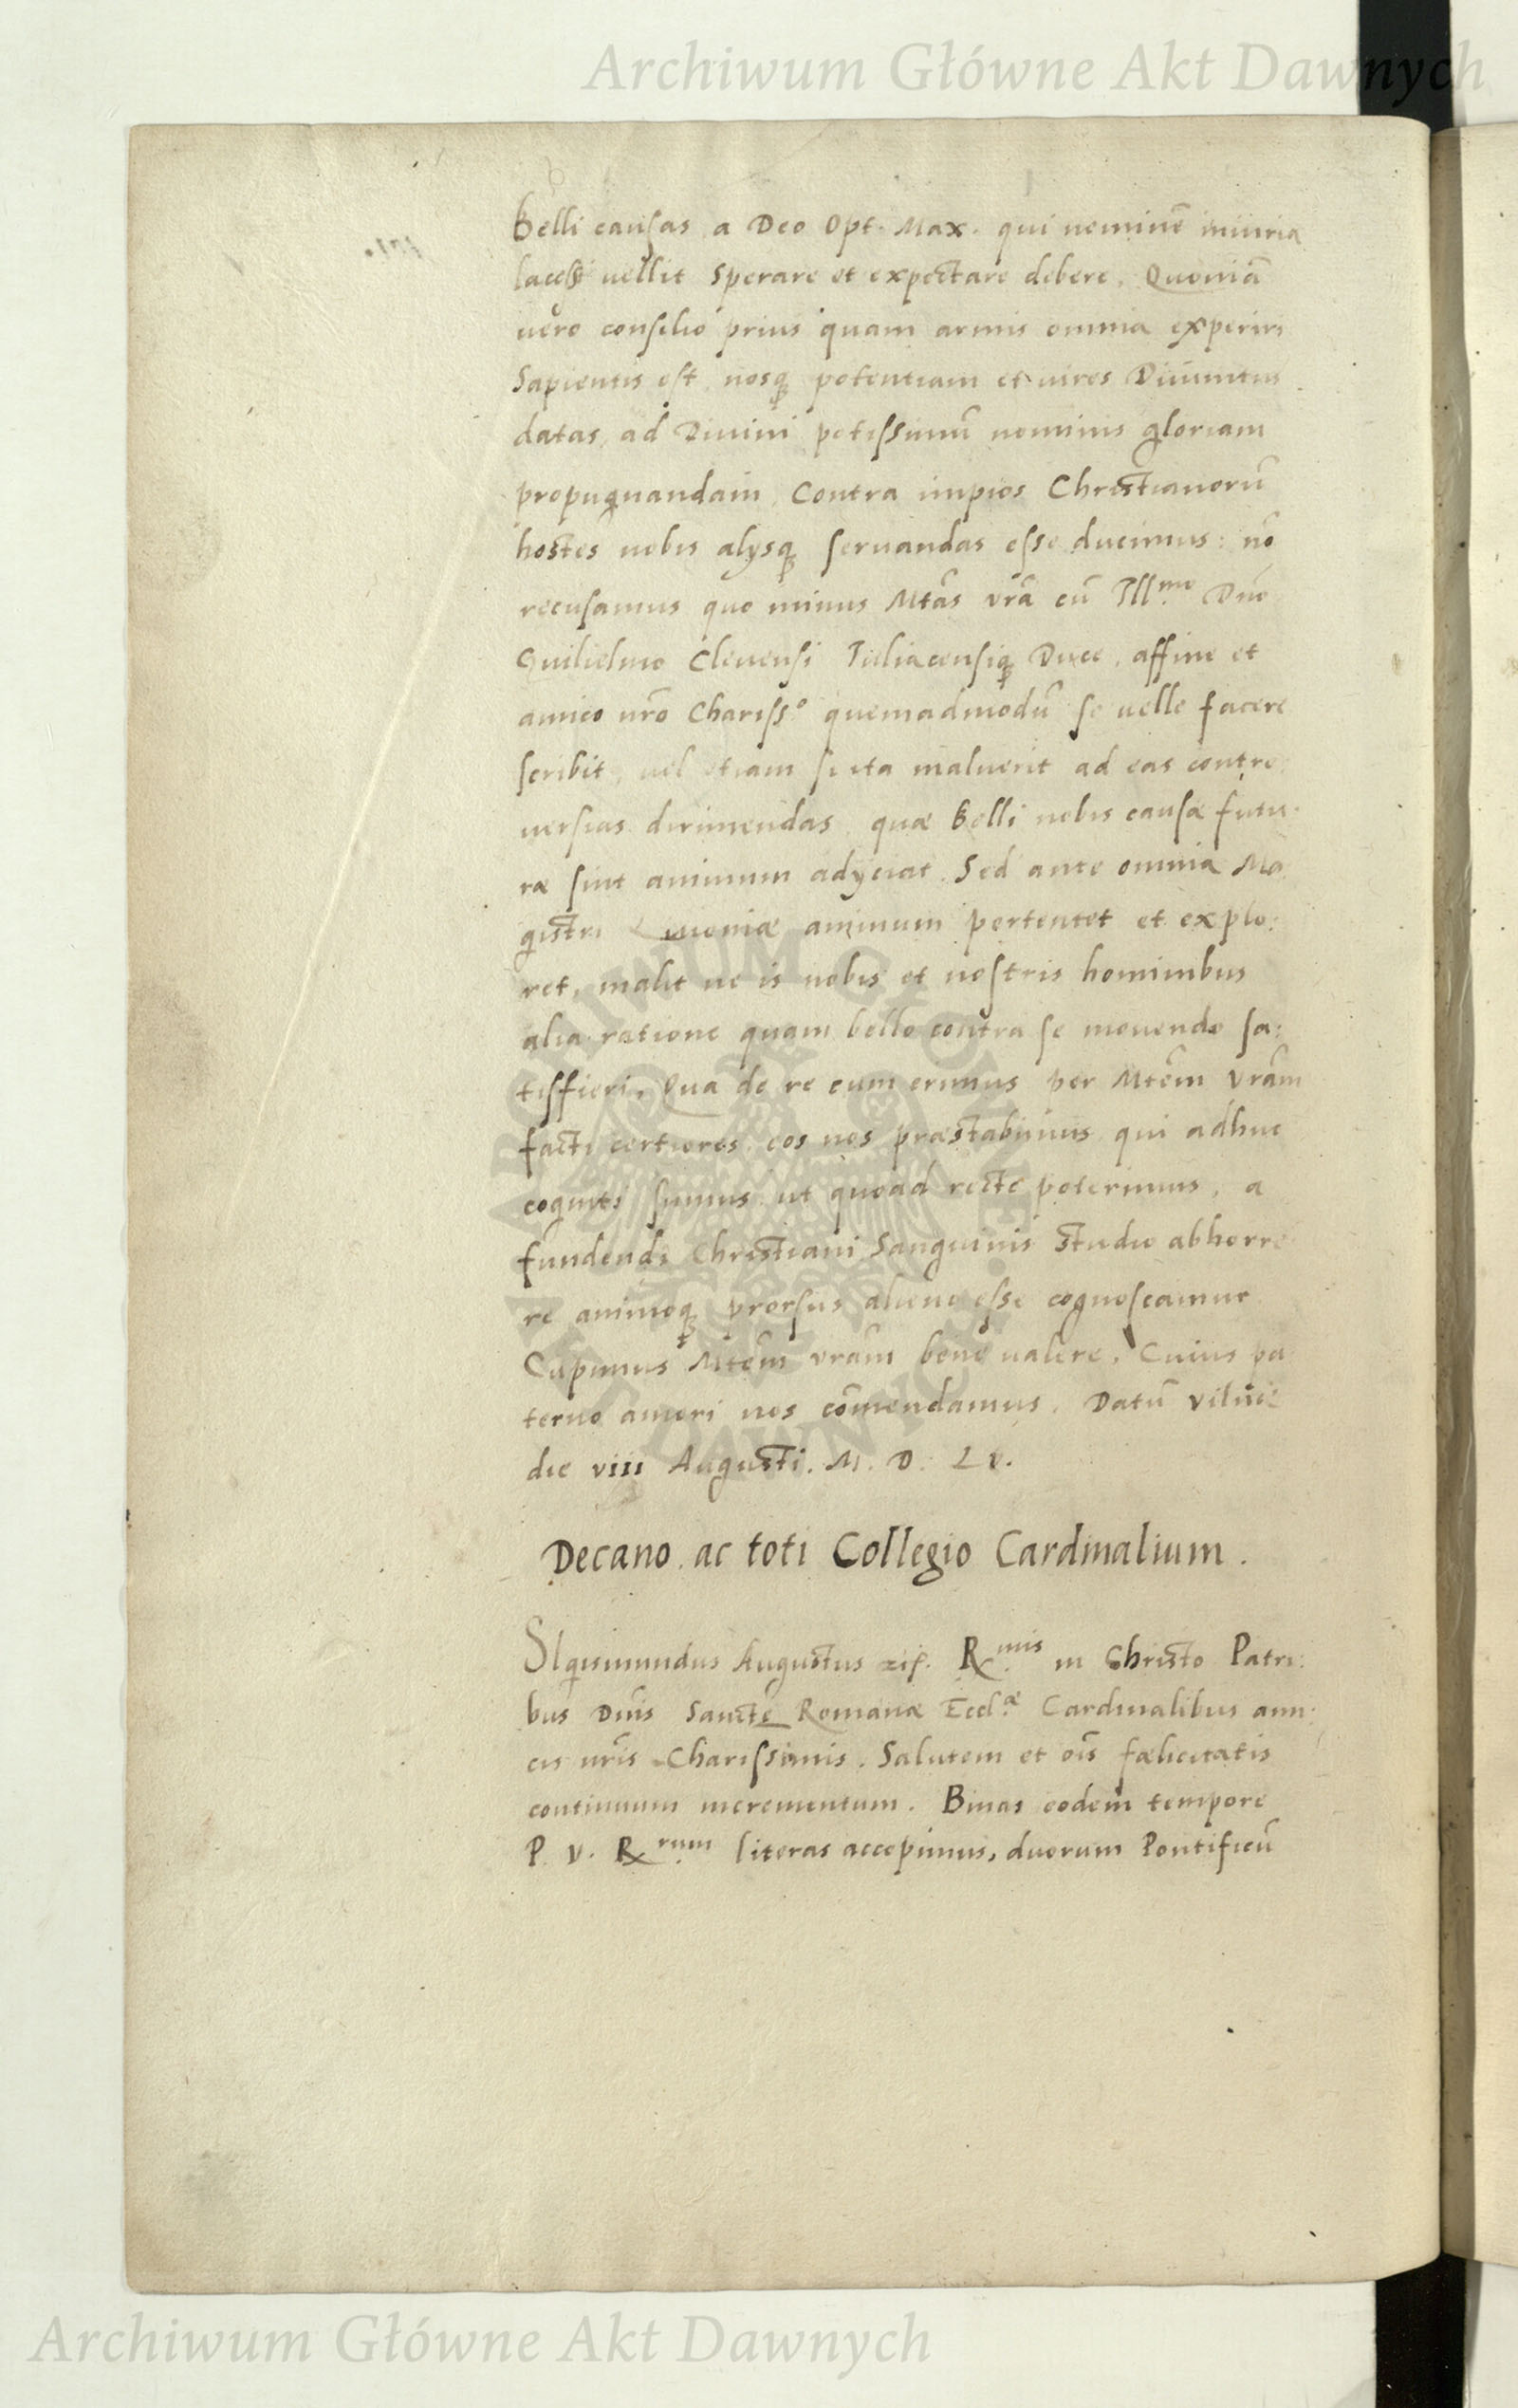 Archiwum Główne Akt Dawnych
Belli causas a Deo Opt. Max. qui neminē iniuria
lacessi vellit sperare et expectare debere. Quoniā
uero consilio prius quam armis omnia experiri
Sapientis est, nosq; potentiam et uires Diuinitus
datas, ad Diuini potissimū nominis gloriam
propugnandam, Contra impios Christianorū
hostes nobis alysq; seruandas esse ducimus: nō
recusamus quo minus Mtās vrā cū Ill.mo Dnō
Guilielmo Cleuensi Iuliacensiq; Duce, affine et
amico nrō Chariss.o quemadmodū se uelle facere
scribit, uel etiam si ita maluerit ad eas contro:
uersias dirimendas, quæ Belli nobis causæ futu:
ræ sint animum adyciat. Sed ante omnia Ma
gistri Liuoniæ animum pertentet et explo:
ret, malit ne is nobis et nostris hominibus
alia ratione quam bello contra se mouendo sa:
tisfieri. Qua de re cum erimus per Mtēm vrām
facti certiores, eos nos præstabimus qui adhuc
cogniti sumus, ut quoad recte poterimus, a
fundendi Christiani Sanguinis studio abhorre
re animoq; prorsus alieno esse cognoscamur
Cupimus Mtēm vrām bene ualere, Cuius pa
terno amori nos cōmendamus. Datū Vilnē
die viii Augusti. M. D. Lv.
Decano ac toti Collegio Cardinalium.
SIgismundus Augustus etc. R.mis in Christo Patri:
bus Dnīs Sanctē Romanæ Eccl.æ Cardinalibus ami:
cis nrīs Charissimis. Salutem et oīs fælicitatis
continuum incrementum. Binas eodem tempore
P. V. R.rum literas accepimus, duorum Pontificū
Archiwum Główne Akt Dawnych